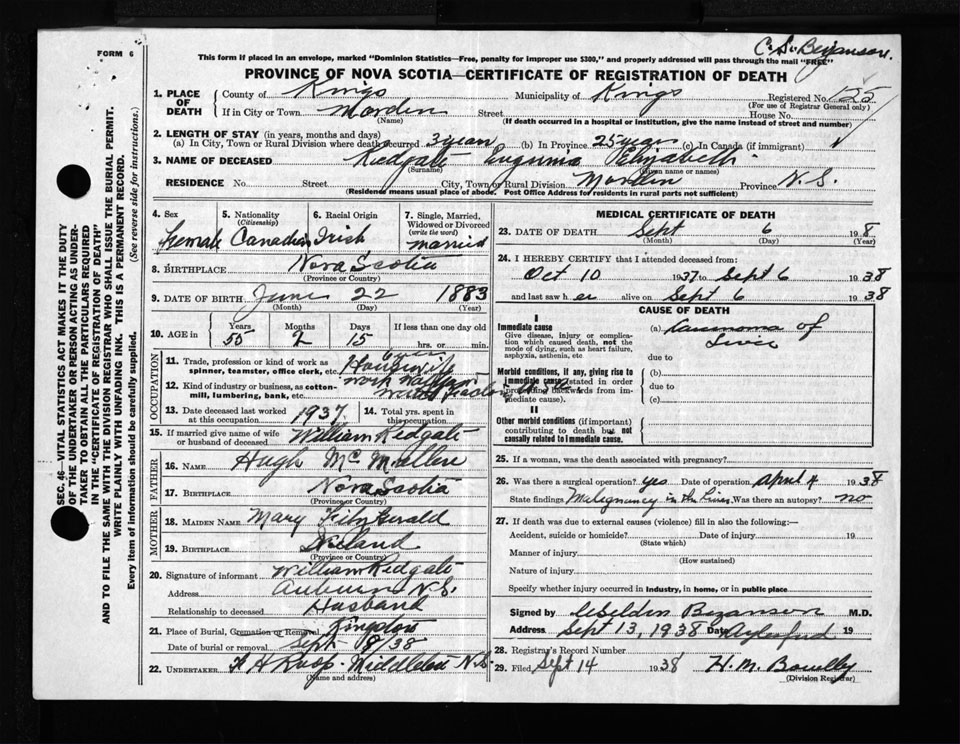 FORM 6
C. S. Bezanson.
This form if placed in an envelope, marked "Dominion Statistics—Free, penalty for improper use $300," and properly addressed will pass through the mail "FREE"
PROVINCE OF NOVA SCOTIA—CERTIFICATE OF REGISTRATION OF DEATH
1. PLACE OF DEATH County of Kings Municipality of Kings Registered No. 155
(For use of Registrar General only)
If in City or Town Morden Street House No.
(Name) (If death occurred in a hospital or institution, give the name instead of street and number)
2. LENGTH OF STAY (in years, months and days)
(a) In City, Town or Rural Division where death occurred 3 years (b) In Province 25 years (c) In Canada (if immigrant)
3. NAME OF DECEASED Kedgate Eugunia Elizabeth
(Surname) (Given name or names)
RESIDENCE No. Street City, Town or Rural Division Morden Province N.S.
(Residence means usual place of abode. Post Office Address for residents in rural parts not sufficient)
4. Sex Female
5. Nationality (Citizenship) Canadian
6. Racial Origin Irish
7. Single, Married, Widowed or Divorced (write the word) married
8. BIRTHPLACE Nova Scotia
(Province or Country)
9. DATE OF BIRTH June 22 1883
(Month) (Day) (Year)
10. AGE in Years 55 Months 2 Days 15 If less than one day old hrs. or min.
OCCUPATION
11. Trade, profession or kind of work as spinner, teamster, office clerk, etc. Housewife
12. Kind of industry or business, as cotton-mill, lumbering, bank, etc.
13. Date deceased last worked at this occupation 1937
14. Total yrs. spent in this occupation
15. If married give name of wife or husband of deceased William Kedgate
FATHER
16. NAME Hugh
17. BIRTHPLACE Nova Scotia
(Province or Country)
MOTHER
18. MAIDEN NAME Mary FitzGerald
19. BIRTHPLACE Ireland
(Province or Country)
20. Signature of informant William Kedgate
Address Auburn N.S.
Relationship to deceased Husband
21. Place of Burial, Cremation or Removal Kingston
Date of burial or removal Sept 8/38
22. UNDERTAKER F A Roop - Middleton N.S.
(Name and address)
MEDICAL CERTIFICATE OF DEATH
23. DATE OF DEATH Sept 6 1938
(Month) (Day) (Year)
24. I HEREBY CERTIFY that I attended deceased from:
Oct 10 1937 to Sept 6 1938
and last saw her alive on Sept 6 1938
CAUSE OF DEATH
I
Immediate cause
Give disease, injury or complication which caused death, not the mode of dying, such as heart failure, asphyxia, asthenia, etc
(a) Carcinoma of
Liver
due to
Morbid conditions, if any, giving rise to immediate cause (stated in order proceeding backwards from immediate cause).
(b)
due to
(c)
II
Other morbid conditions (if important) contributing to death but not causally related to immediate cause.
25. If a woman, was the death associated with pregnancy?
26. Was there a surgical operation? yes Date of operation April 4 1938
State findings Malignancy in the liver Was there an autopsy? no
27. If death was due to external causes (violence) fill in also the following:—
Accident, suicide or homicide? Date of injury 19
(State which)
Manner of injury
(How sustained)
Nature of injury
Specify whether injury occurred in industry, in home, or in public place
Signed by Bezanson M.D.
Address Sept 13, 1938 Date Aylesford 19
28. Registrar's Record Number
29. Filed Sept 14 1938 H. M.
(Division Registrar)
SEC. 46—VITAL STATISTICS ACT MAKES IT THE DUTY
OF THE UNDERTAKER OR PERSON ACTING AS UNDER-
TAKER TO OBTAIN ALL THE PARTICULARS REQUIRED
IN THE "CERTIFICATE OF REGISTRATION OF DEATH"
AND TO FILE THE SAME WITH THE DIVISION REGISTRAR WHO SHALL ISSUE THE BURIAL PERMIT.
WRITE PLAINLY WITH UNFADING INK. THIS IS A PERMANENT RECORD.
Every item of information should be carefully supplied. (See reverse side for instructions.)